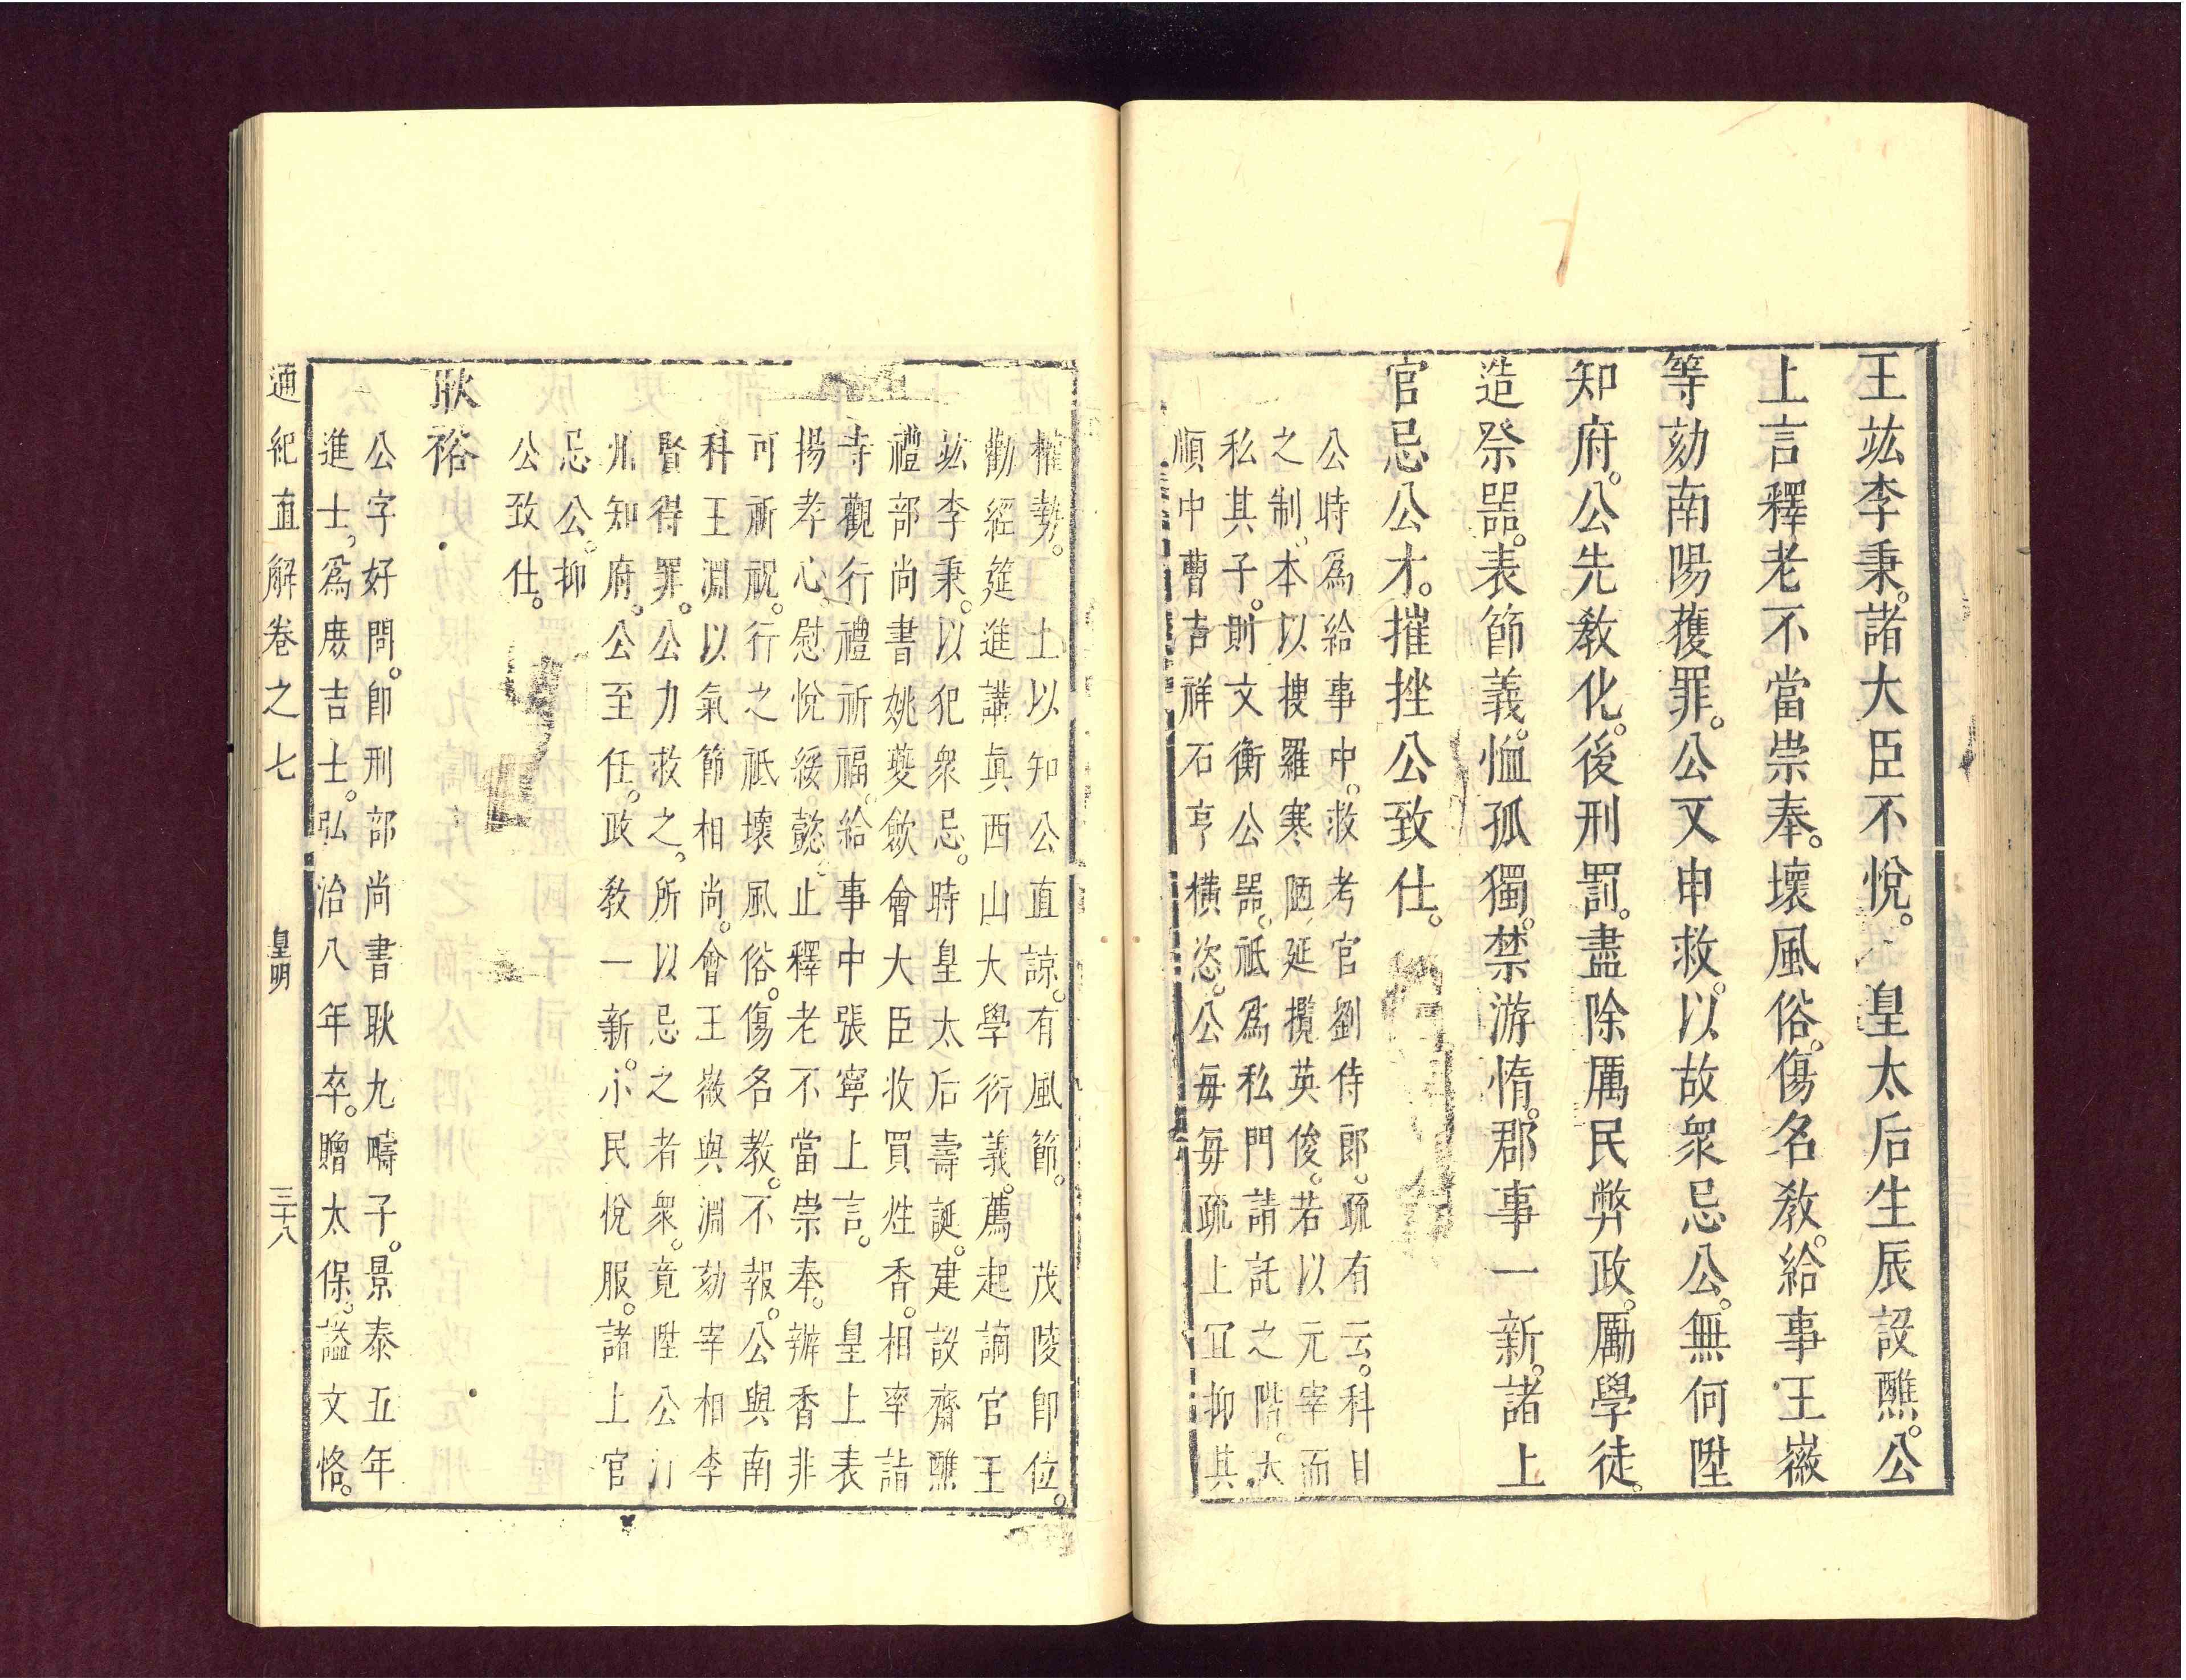 王竑李秉。諸大臣不悅。 皇太后生辰設醮。公
上言釋老不當崇奉。壞風俗。傷名教。給事王徽
等劾南陽獲罪。公又申救。以故衆忌公。無何陞
知府。公先教化。後刑罰。盡除厲民弊政。勵學徒。
造祭器。表節義。恤孤獨。禁游惰。郡事一新。諸上
官忌公才。摧挫公致仕。
公時爲給事中。救考官劉侍郎。疏有云。科目
之制。本以搜羅寒陋。延攬英俊。若以元宰而
私其子。則文衡公器。祗爲私門請託之階。大
順中曹吉祥石亨橫恣。公每每疏上宜抑其
權勢。 上以知公直諒。有風節。 茂陵卽位。
勸經筵進講真西山大學衍義。薦起謫官王
竑李秉。以犯衆忌。時皇太后壽誕。建設齋醮
禮部尚書姚夔歛會大臣收買牲香。相率詣
寺觀行禮祈福。給事中張寧上言。 皇上表
揚孝心。慰悅綏懿。止釋老不當崇奉。辦香非
可祈祝。行之祗壞風俗。傷名教。不報。公與南
科王淵以氣節相尚。會王徽與淵劾宰相李
賢得罪。公力救之。所以忌之者衆。竟陞公汀
州知府。公至任。政教一新。小民悅服。諸上官
忌公。抑
公致仕。
耿裕
公字好問。卽刑部尚書耿九疇子。景泰五年
進士。爲庶吉士。弘治八年卒。贈太保。謚文恪。
通紀直解卷之七 皇明 三十八